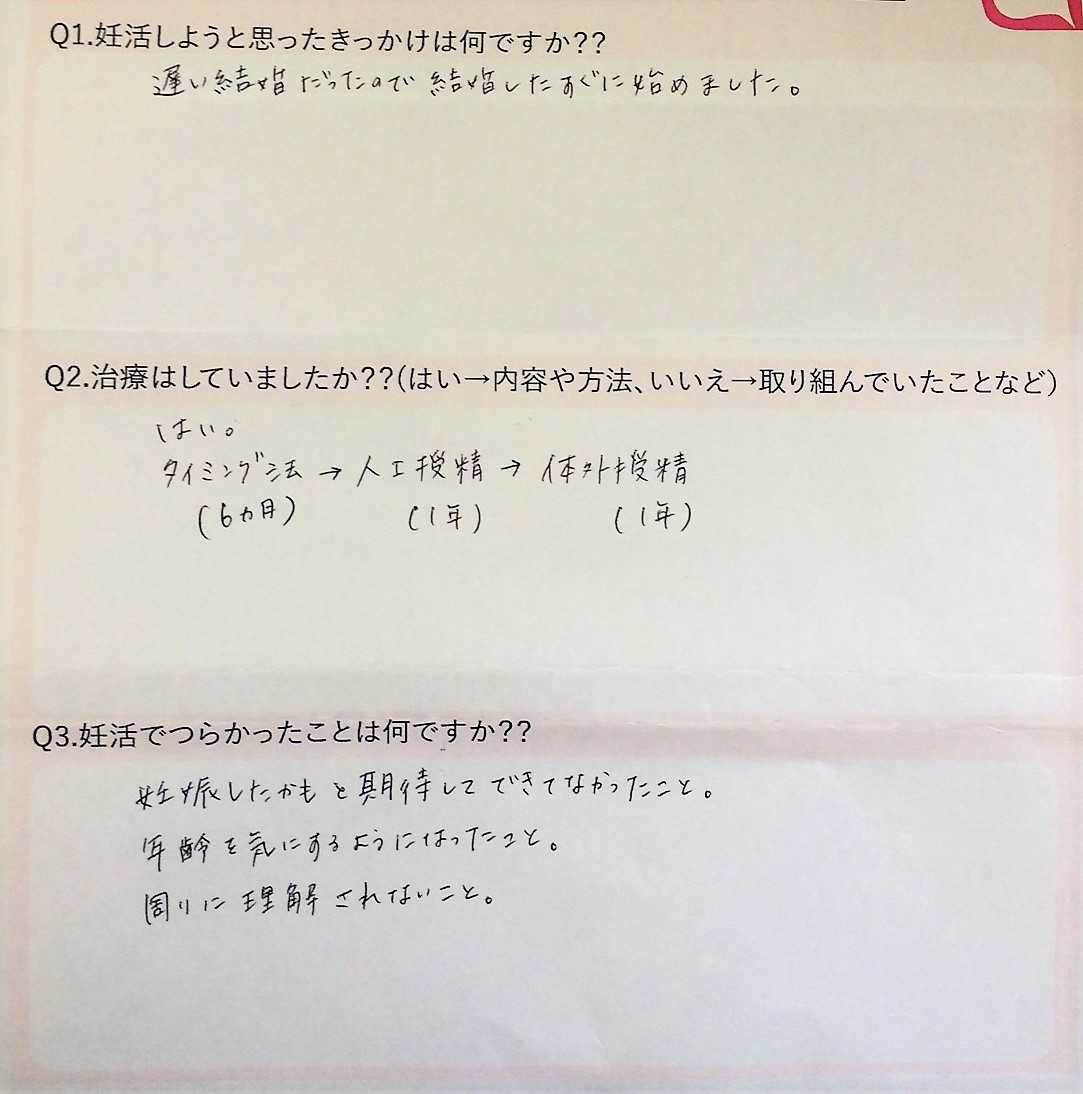 Q1.妊活しようと思ったきっかけは何ですか??
遅い結婚だったので結婚したすぐに始めました。
Q2.治療はしていましたか??(はい→内容や方法、いいえ→取り組んでいたことなど)
はい。
タイミング法→人工授精→体外授精
(6ヵ月) (1年) (1年)
Q3.妊活でつらかったことは何ですか??
妊娠したかもと期待してできてなかったこと。
年齢を気にするようになったこと。
周りに理解されないこと。